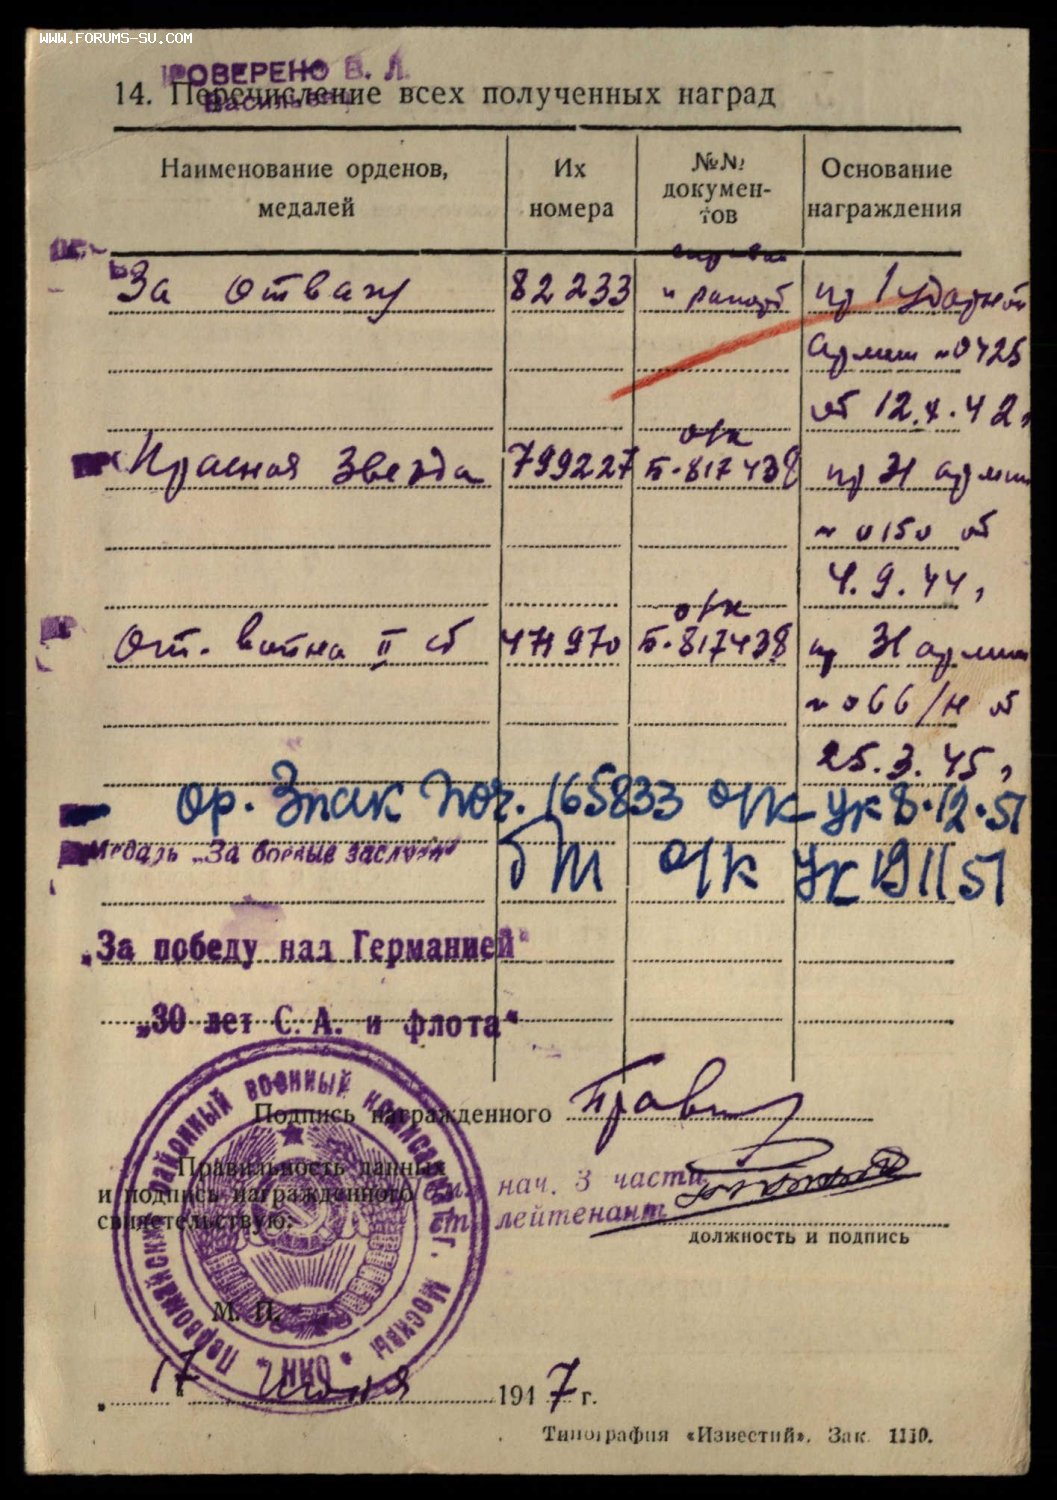 WWW.FORUMS-SU.COM
ПРОВЕРЕНО В. Л.
14. Перечисление всех полученных наград
Наименование орденов, медалей
Их номера
№№ документов
Основание награждения
За отвагу 82233 справка и рапорт пр 1 ударной
армии №0425
от 12.X.42,
о/к
Красная Звезда 799227 Б-817438 пр Н армии
№ 0150 от
4.9.44,
о/к
От. война II ст 471970 Б-817438 пр Н армии
№ 066/н от
25.3.45,
ор. Знак Поч. 165833 о/к Ук 8.12.51
Медаль „За боевые заслуги“ б/н о/к Ук 191151
„За победу над Германией“
„30 лет С. А. и флота“
Подпись награжденного
Правильность данных
и подпись награжденного
свидетельствую:
нач. 3 части
ст. лейтенант
должность и подпись
М. П.
Первомайский районный военный комиссариат г. Москвы
17 июня 1947 г.
Типография «Известий». Зак. 1110.